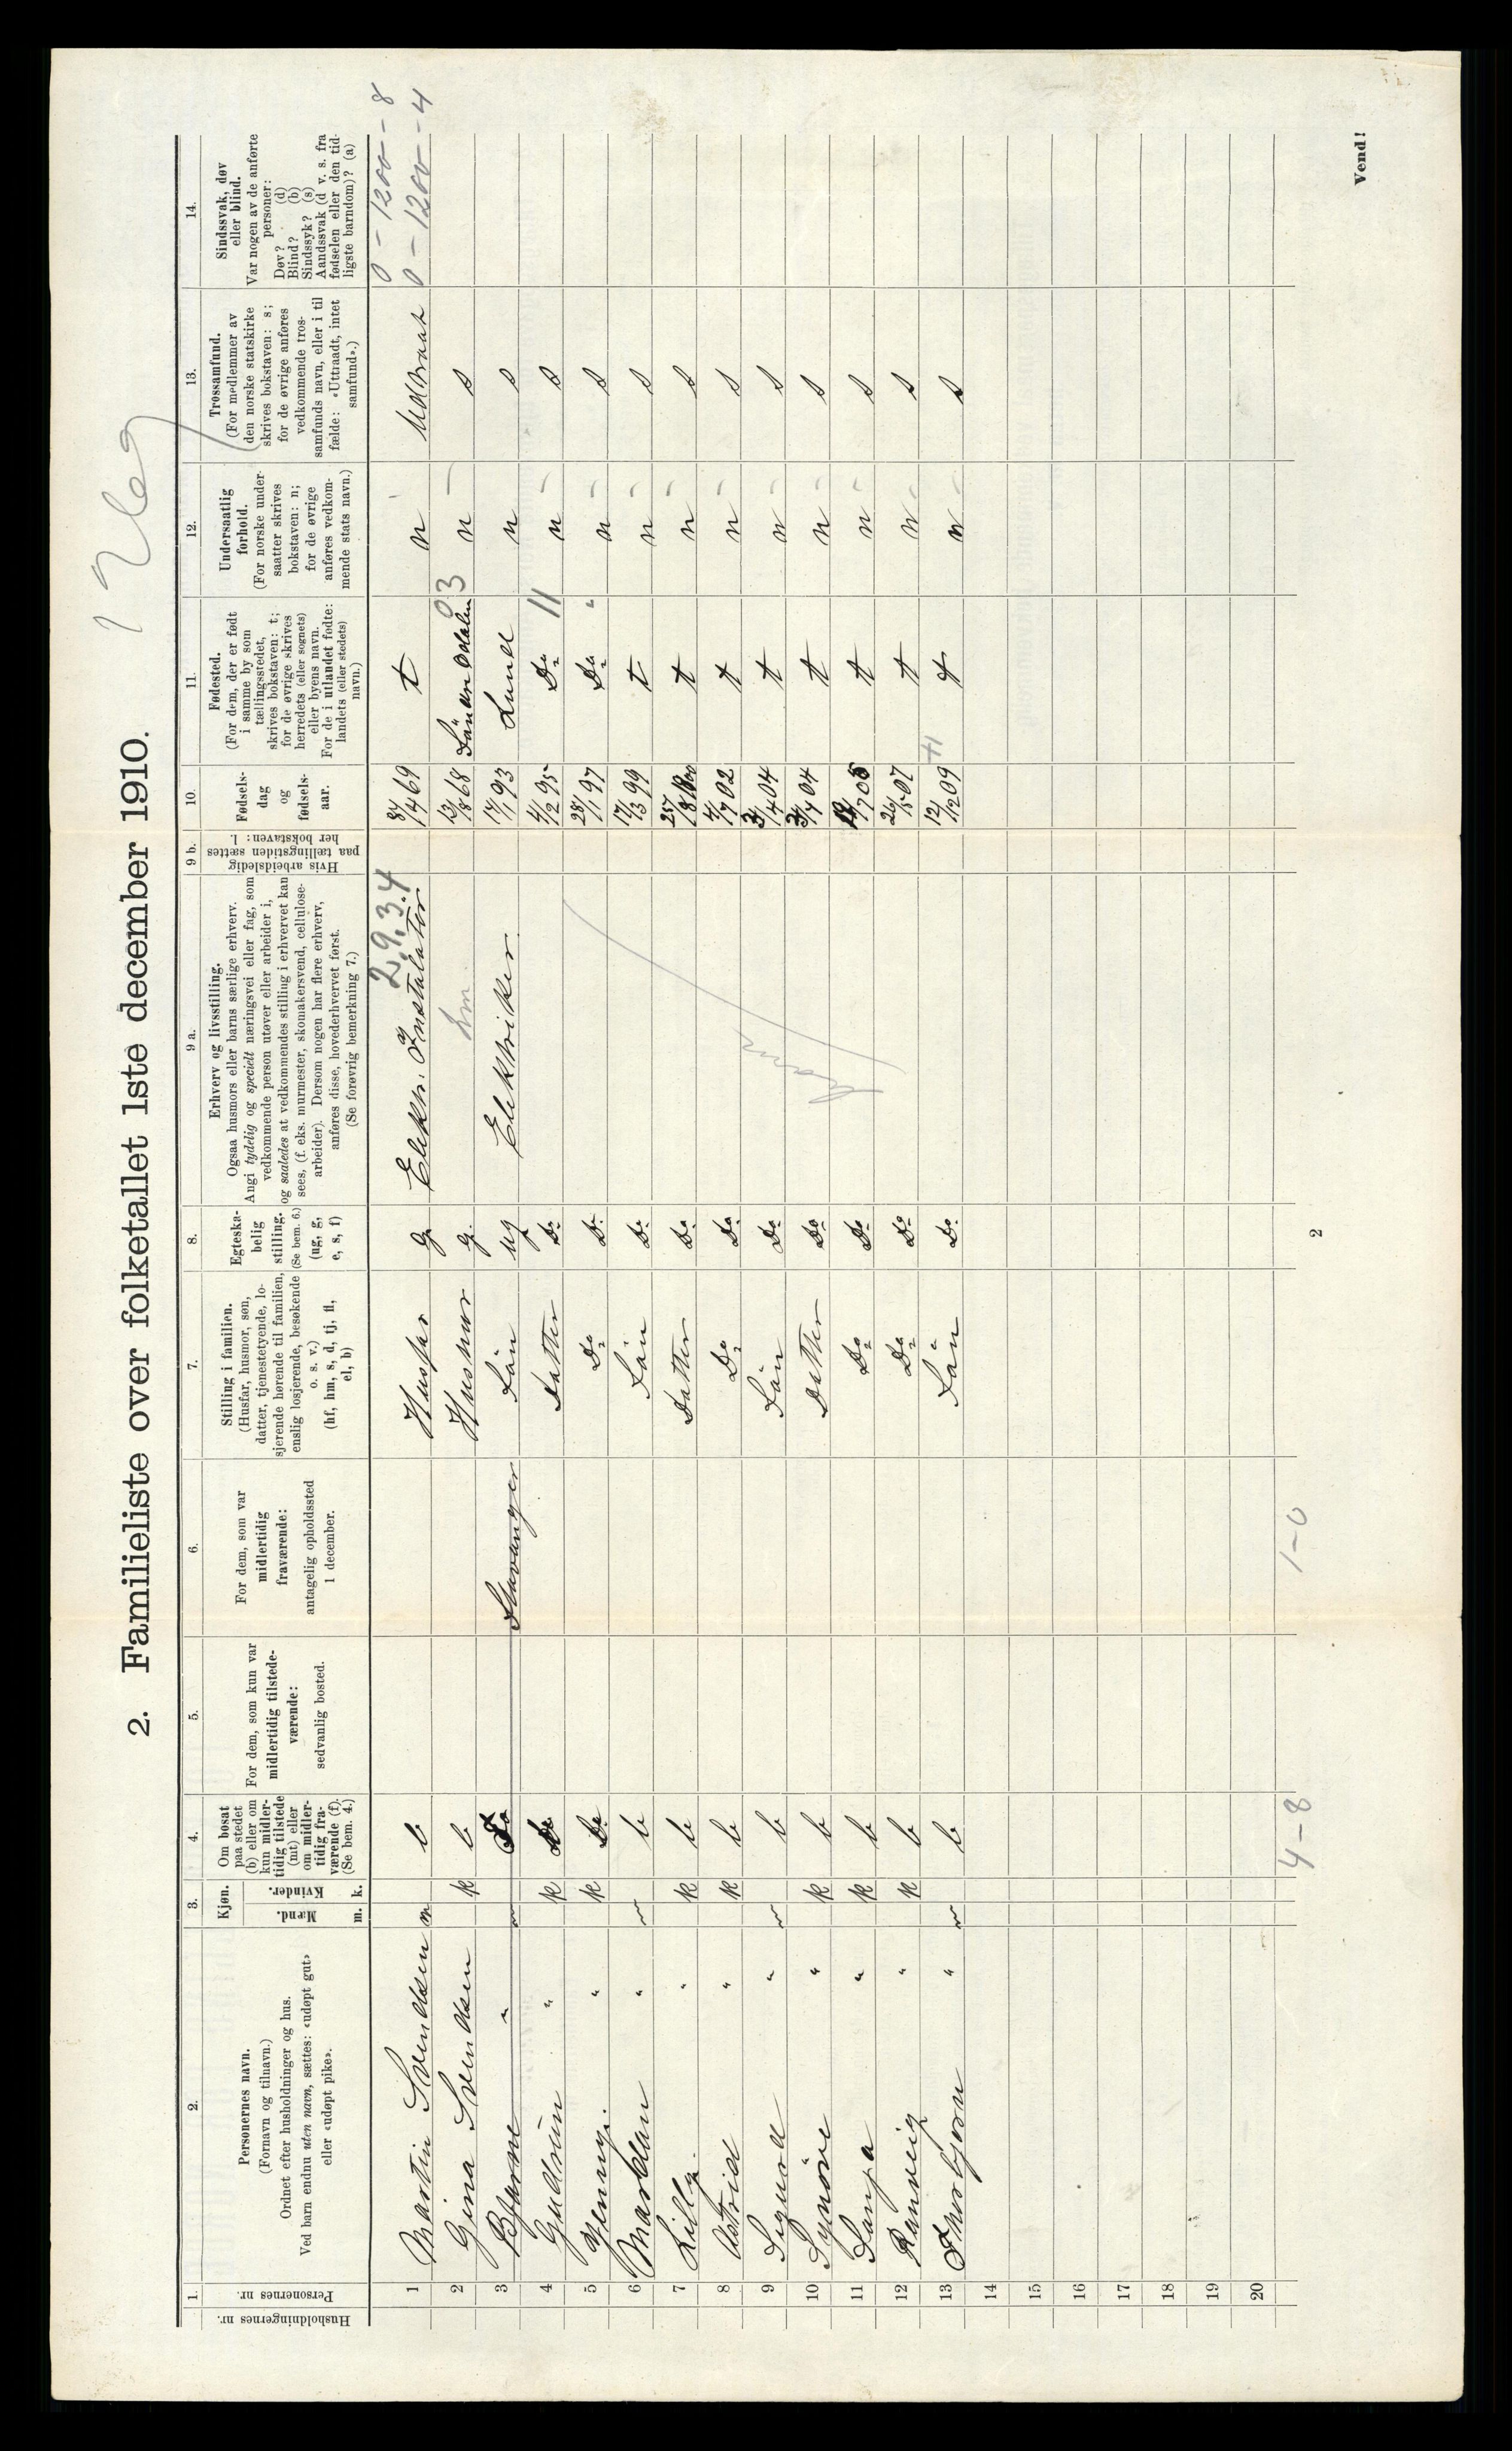 2. Familieliste over folketallet 1ste december 1910.
1.
Husholdningernes nr.
Personernes nr.
2.
Personernes navn.
(Fornavn og tilnavn.)
Ordnet efter husholdninger og hus.
Ved barn endnu uten navn, sættes: «udøpt gut»
eller «udøpt pike».
3.
Kjøn.
Mænd.
Kvinder.
m.
k.
4.
Om bosat
paa stedet
(b) eller om
kun midler-
tidig tilstede
(mt) eller
om midler-
tidig fra-
værende (f).
(Se bem. 4.)
5.
For dem, som kun var
midlertidig tilstede-
værende:
sedvanlig bosted.
6.
For dem, som var
midlertidig
fraværende:
antagelig opholdssted
1 december.
7.
Stilling i familien.
(Husfar, husmor, søn,
datter, tjenestetyende, lo-
sjerende hørende til familien,
enslig losjerende, besøkende
o. s. v.)
(hf, hm, s, d, tj, fl,
el, b)
8.
Egteska-
belig
stilling.
(Se bem. 6.)
(ug, g,
e, s, f)
9 a.
Erhverv og livsstilling.
Ogsaa husmors eller barns særlige erhverv.
Angi tydelig og specielt næringsvei eller fag, som
vedkommende person utøver eller arbeider i,
og saaledes at vedkommendes stilling i erhvervet kan
sees, (f. eks. murmester, skomakersvend, cellulose-
arbeider). Dersom nogen har flere erhverv,
anføres disse, hovederhvervet først.
(Se forøvrig bemerkning 7.)
9 b.
Hvis arbeidsledig
paa tællingstiden sættes
her bokstaven: l.
10.
Fødsels-
dag
og
fødsels-
aar.
11.
Fødested.
(For dem, der er født
i samme by som
tællingsstedet,
skrives bokstaven: t;
for de øvrige skrives
herredets (eller sognets)
eller byens navn.
For de i utlandet fødte:
landets (eller stedets)
navn.)
12.
Undersaatlig
forhold.
(For norske under-
saatter skrives
bokstaven: n;
for de øvrige
anføres vedkom-
mende stats navn.)
13.
Trossamfund.
(For medlemmer av
den norske statskirke
skrives bokstaven: s;
for de øvrige anføres
vedkommende tros-
samfunds navn, eller i til
fælde: «Uttraadt, intet
samfund».)
14.
Sindssvak, døv
eller blind.
Var nogen av de anførte
personer:
Døv? (d)
Blind? (b)
Sindssyk? (s)
Aandssvak (d. v. s. fra
fødselen eller den tid-
ligste barndom)? (a)
0 - 1200 - 8
2.9.34
1 Martin Svendsen m b Husfar g. Elektr. Instalatør 69 t n Udtraat 0 - 1200 - 4
2 Gina Svendsen k b Husmor g. hm 13/8 68 03 n s
3 Bjarne " Stavanger Sön ug Elektriker 93 Lund n s
4 Gudrun " k Datter Do 4/12 95 Do 11 n s
5 Jenny. " k Do Do 28/1 97 Do " n s
6 " b Sön Do 99 t n s
7 Lilly. " k b Datter Do t n s
8 Astrid " k b Do Do 02 t n s
9 Sigurd " b Sön Do 04 t n s
10 Synöve " k b Datter Do 04 t n s
11 " k b Do Do t n s
12 Ranveig " k b Do Do 07 t n s
13 Thorbjörn " b Sön Do 12/12 09 t n s
14
15
16
17
18
19
20
4-8
1-0
2
Vend!